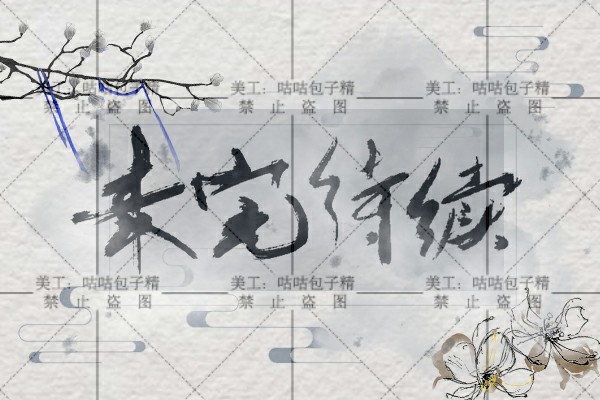 美工：咕咕包子精 美工：咕咕包子精 美工：咕咕包子精
禁止盗图 禁止盗图
未完待续
美工：咕咕包子精 美工：咕咕包子精 美工：咕咕包子精
禁止盗图 禁止盗图 禁止盗图